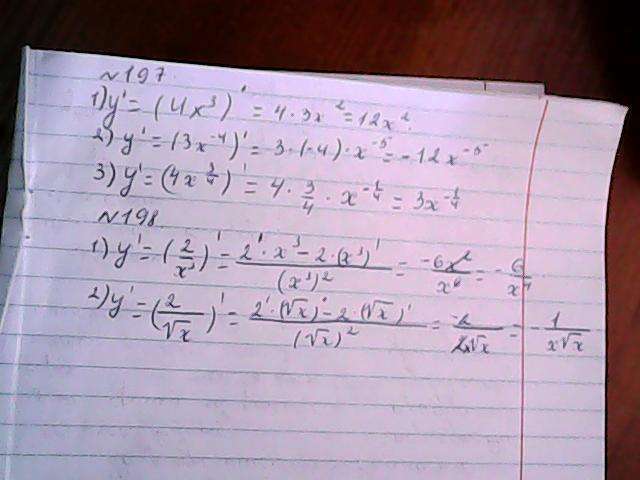 №197.
1) y' = (4x³)' = 4·3x² = 12x².
2) y' = (3x⁻⁴)' = 3·(-4)·x⁻⁵ = -12x⁻⁵
3) y' = (4x^(3/4))' = 4·3/4·x^(-1/4) = 3x^(-1/4)
№198
1) y' = (2/x³)' = (2'·x³-2·(x³)')/(x³)² = -6x²/x⁶ = -6/x⁴
2) y' = (2/√x)' = (2'·(√x)-2·(√x)')/(√x)² = = -1/(x√x)